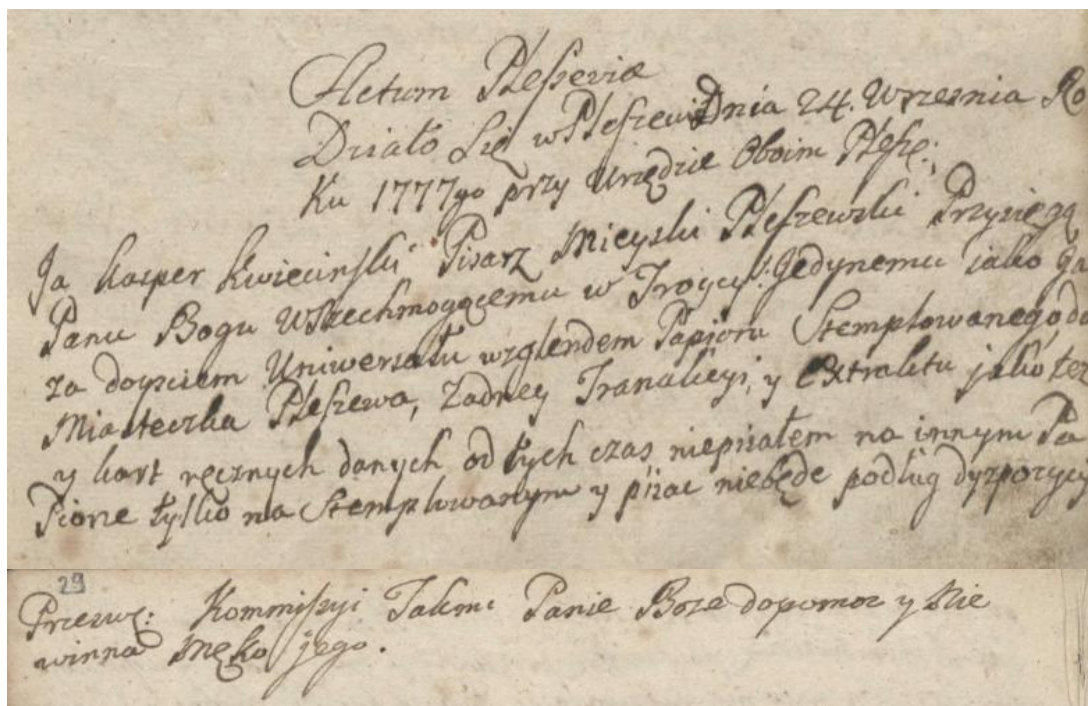 Actum Plessewiæ
Działo Się w Plessewie Dnia 24. Wrzesnia Ro
Ku 1777go przy Urzędzie Oboim Plesze:
Ja Kasper Kwiecinski Pisarz Mieyski Pleszewski Przysięgą
Panu Bogu Wszechmogącemu w Troycy: Jedynemu jako ja
za doysciem Uniwersału wzglendem Papioru Stemplowanego, do
Miasteczka Pleszewa, Zadney Tranakcyi, y Extraktu jako tez
y kart ręcznych danych od tych czas niepisałem na innym Pa
Piorze tylko na Stemplowanym y pisac niebęde podług dyzpozycyi
29
Przesw: Kommissyi Takmi Panie Boze dopomoz y Nie
winna Męko jego.